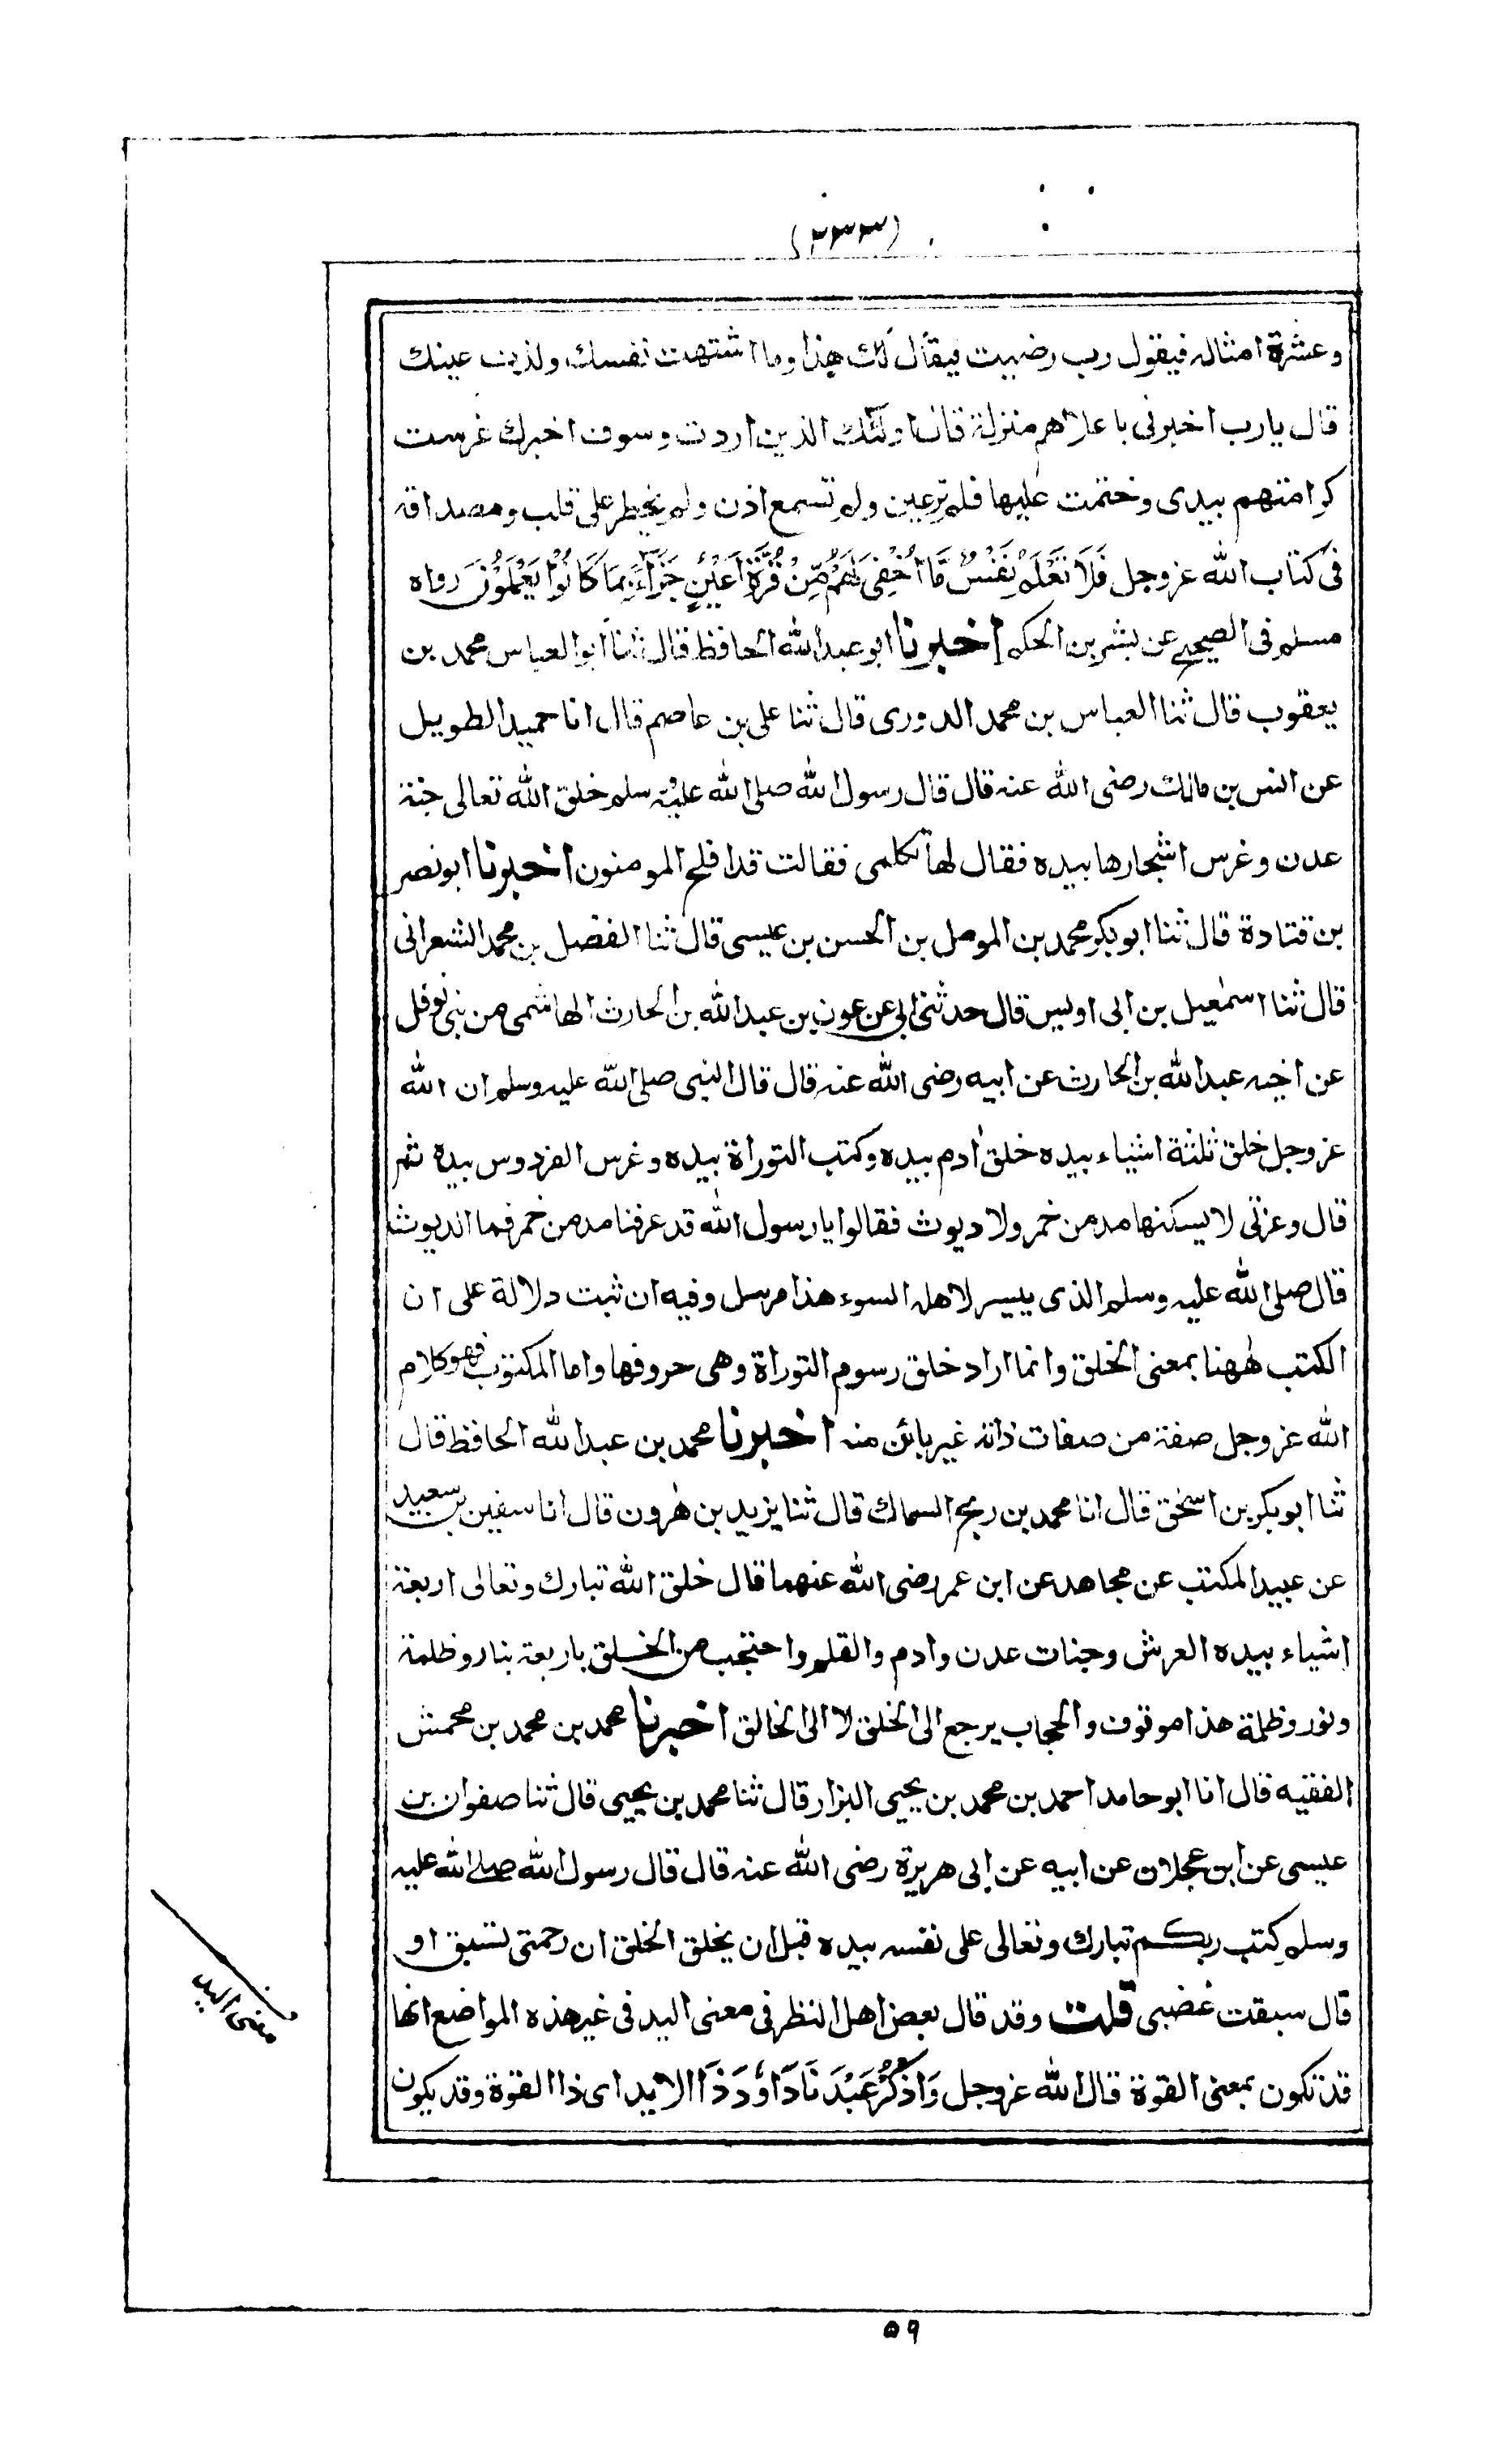 (٢٣٣)
وعشرة امثاله فيقول رب رضيت فيقال لك هذا وما اشتهت نفسك ولذت عينك
قال يارب اخبرنى باعلاهم منزلة قال اولئك الذين اردت وسوف اخبرك غرست
كرامتهم بيدى وختمت عليها فلم ترعين ولم تسمع اذن ولم يخطر على قلب ومصداقه
فى كتاب الله عزوجل فَلَا تَعْلَمُ نَفْسٌ مَّا اُخْفِىَ لَهُمْ مِّنْ قُرَّةِ اَعْيُنٍ جَزَآءً بِمَا كَانُوْا يَعْمَلُوْنَ رواه
مسلم فى الصحيح عن بشر بن الحكم اخبرنا ابو عبد الله الحافظ قال ثنا ابو العباس محمد بن
يعقوب قال ثنا العباس بن محمد الدورى قال ثنا على بن عاصم قال انا حميد الطويل
عن انس بن مالك رضى الله عنه قال قال رسول الله صلى الله عليه وسلم خلق الله تعالى جنة
عدن وغرس اشجارها بيده فقال لها تكلمى فقالت قد افلح المومنون اخبرنا ابو نصر
بن قتادة قال ثنا ابو بكر محمد بن المومل بن الحسن بن عيسى قال ثنا الفضل بن محمد الشعرانى
قال ثنا اسمعيل بن ابى اويس قال حدثنى ابى عن عون بن عبد الله بن الحارث الهاشمى من بنى نوفل
عن اخيه عبد الله بن الحارث عن ابيه رضى الله عنه قال قال النبى صلى الله عليه وسلم ان الله
عزوجل خلق ثلثة اشياء بيده خلق ادم بيده وكتب التوراة بيده وغرس الفردوس بيده ثم
قال وعزتى لا يسكنها مدمن خمر ولا ديوث فقالوا يا رسول الله قد عرفنا مدمن خمر فما الديوث
قال صلى الله عليه وسلم الذى ييسر لاهله السوء هذا مرسل وفيه ان ثبت دلالة على ان
الكتب ههنا بمعنى الخلق وانما اراد خلق رسوم التوراة وهى حروفها واما المكتوب فهو كلام
الله عزوجل صفة من صفات ذاته غير بائن منه اخبرنا محمد بن عبد الله الحافظ قال
ثنا ابو بكر بن اسحق قال انا محمد بن ربح السماك قال ثنا يزيد بن هرون قال انا سفين بن سعيد
عن عبيد المكتب عن مجاهد عن ابن عمر رضى الله عنهما قال خلق الله تبارك وتعالى اربعة
اشياء بيده العرش وجنات عدن وادم والقلم واحتجب من الخلق باربعة بنار وظلمة
ونور وظلمة هذا موقوف والحجاب يرجع الى الخلق لا الى الخالق اخبرنا محمد بن محمد بن محمش
الفقيه قال انا ابو حامد احمد بن محمد بن يحيى البزار قال ثنا محمد بن يحيى قال ثنا صفوان بن
عيسى عن ابن عجلان عن ابيه عن ابى هريرة رضى الله عنه قال قال رسول الله صلى الله عليه
وسلم كتب ربكم تبارك وتعالى على نفسه بيده قبل ان يخلق الخلق ان رحمتى تسبق او
قال سبقت غضبى قلت وقد قال بعض اهل النظر فى معنى اليد فى غير هذه المواضع انها
قد تكون بمعنى القوة قال الله عزوجل وَاذْكُرْ عَبْدَنَا دَاوٗدَ ذَا الايد اى ذا القوة وقد يكون
معنى اليد
٥٩